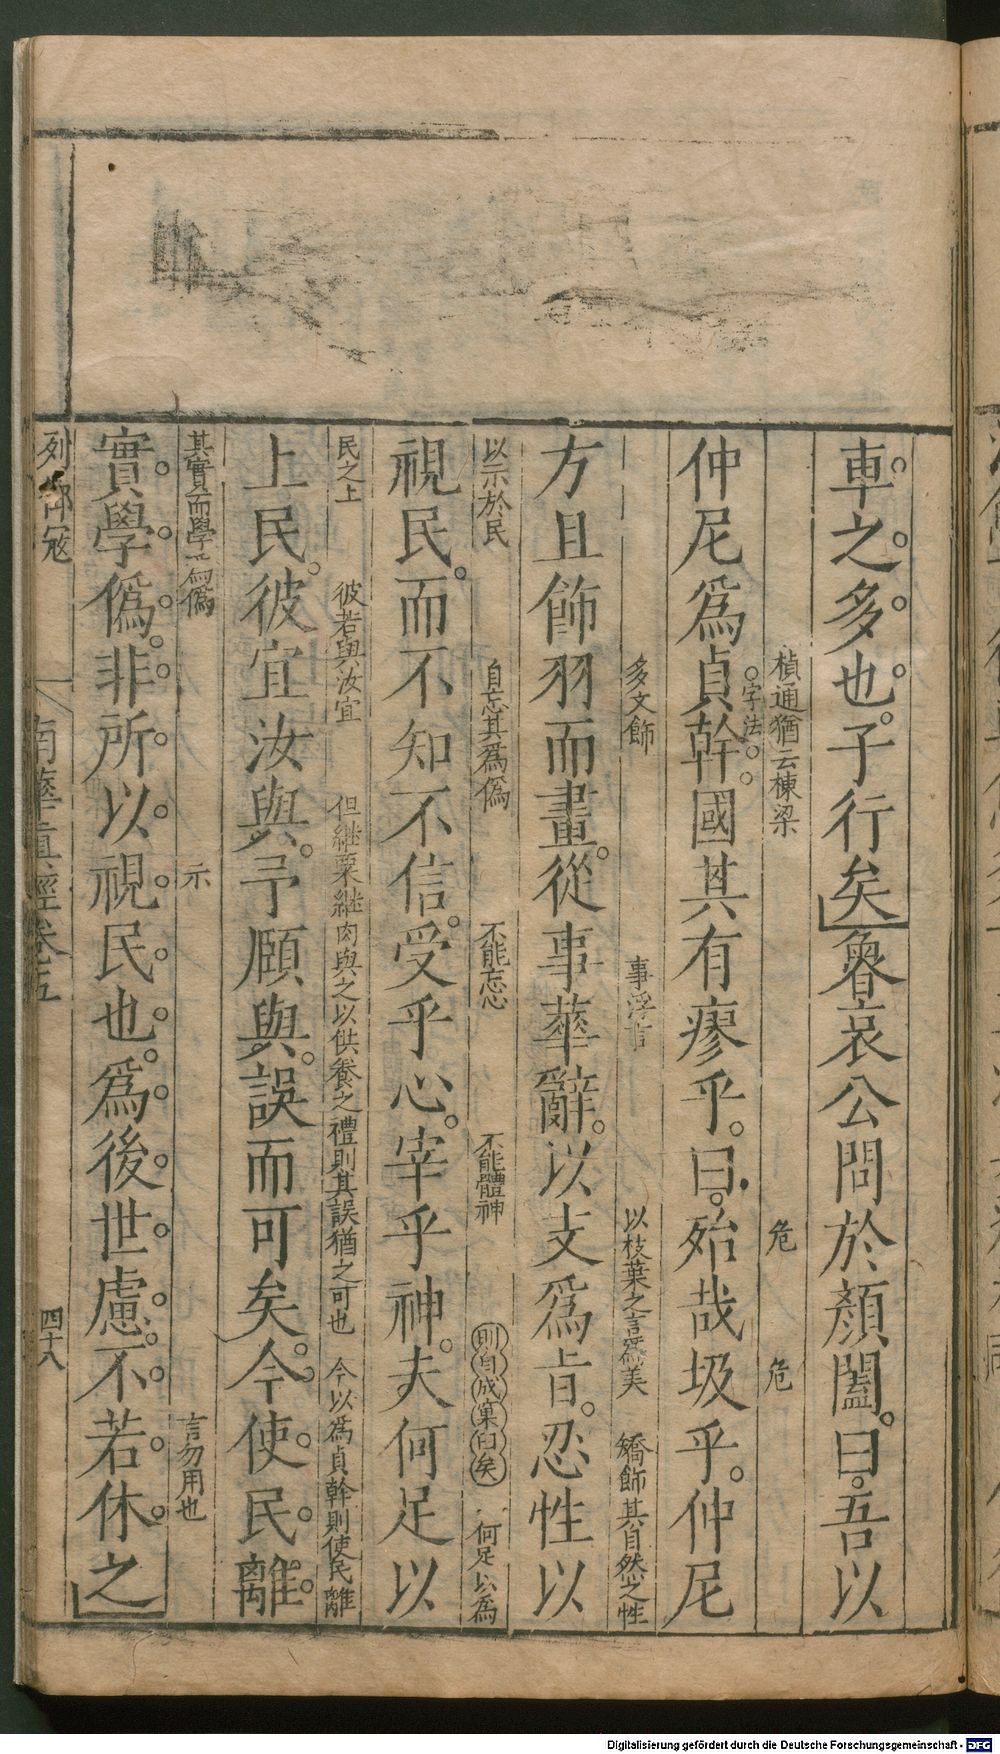 車之多也子行矣魯哀公問於顏闔曰吾以
楨通猶云棟梁
危
危
仲尼爲貞幹國其有瘳乎曰殆哉圾乎仲尼
字法
多文飾
事浮旨
以枝葉之言爲美
矯飾其自然之性
方且飾羽而畫從事華辭以支爲旨忍性以
以示於民
自忘其爲僞
不能忘心
不能體神
則自成窠臼矣
何足以爲
視民而不知不信受乎心宰乎神夫何足以
民之上
彼若與汝宜
但継粟継肉與之以供養之禮則其誤猶之可也
今以爲貞幹則使民離
上民彼宜汝與予頤與誤而可矣今使民離
其實而學
僞
示
言勿用也
實學僞非所以視民也爲後世慮不若休之
列御寇
南華真經卷五
四十八
Digitalisierung gefördert durch die Deutsche Forschungsgemeinschaft - DFG